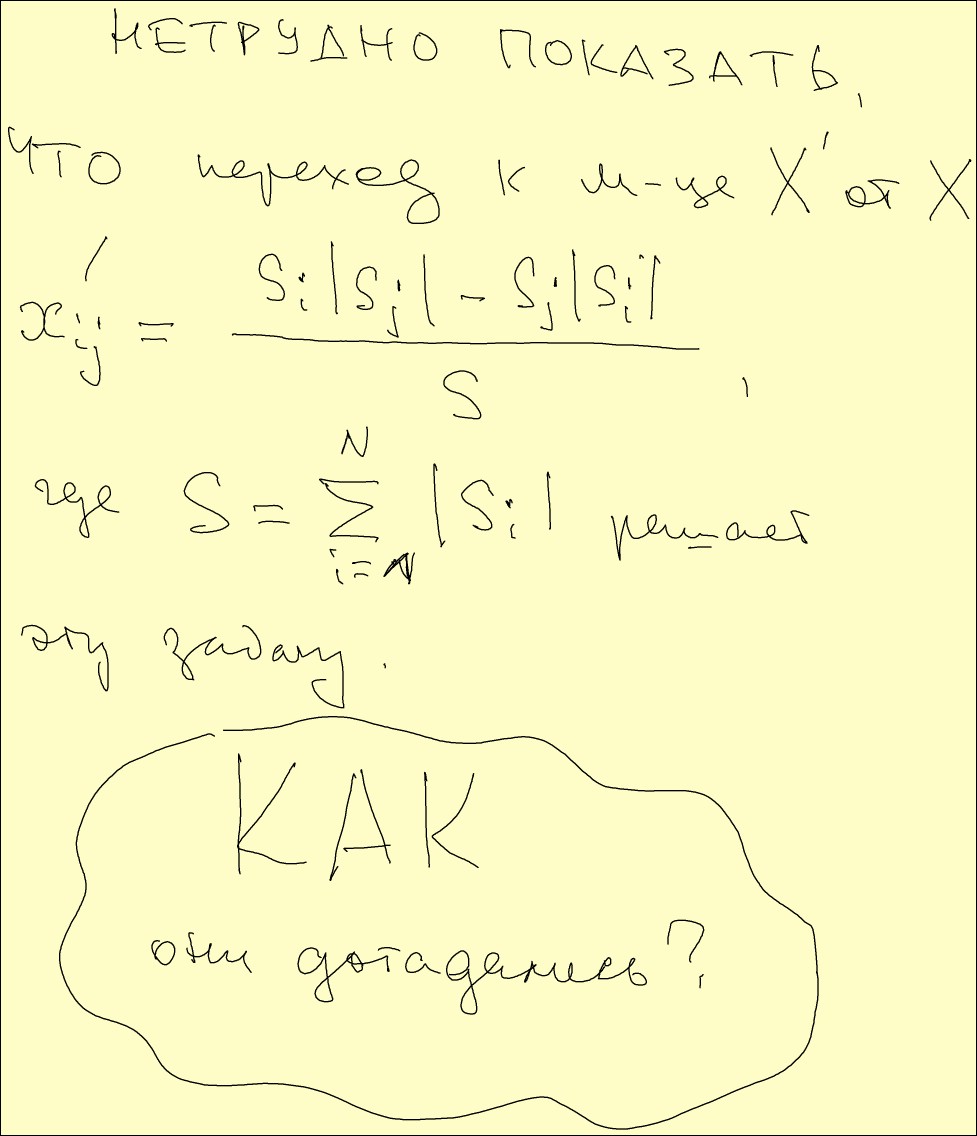 НЕТРУДНО ПОКАЗАТЬ,
ЧТО переход к м-це X' от X
x'ij = (Si|Sj| - Sj|Si|) / S ,
где S = ∑ i=1 N |Si| решает
эту задачу.
КАК
они догадались?